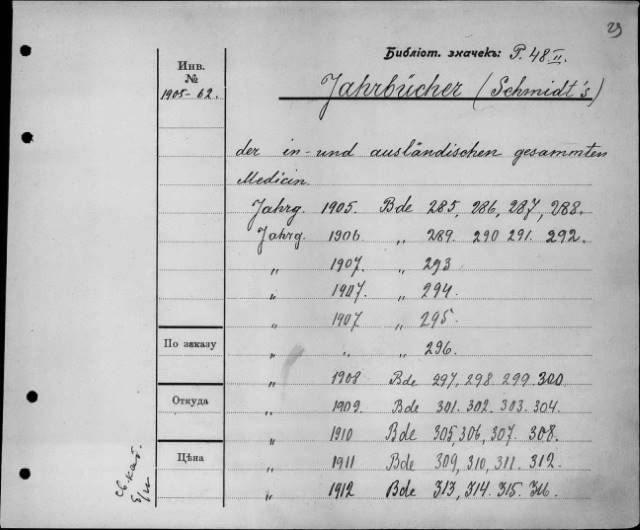 29
Библіот. значекъ: P. 48 II.
Инв.
№
1905-62.
Jahrbücher (Schmidt's)
der in- und ausländischen gesammten
Medicin.
Jahrg. 1905. Bde 285, 286, 287, 288.
Jahrg. 1906 „ 289. 290 291. 292.
„ 1907. „ 293
„ 1907. „ 294.
„ 1907 „ 295.
„ „ „ 296.
По заказу
„ 1908 Bde 297, 298 299. 300
Откуда
„ 1909. Bde 301. 302. 303. 304.
„ 1910 Bde 305, 306, 307. 308.
Цѣна
„ 1911 Bde 309, 310, 311. 312.
„ 1912 Bde 313, 314. 315. 316.
св. кат.